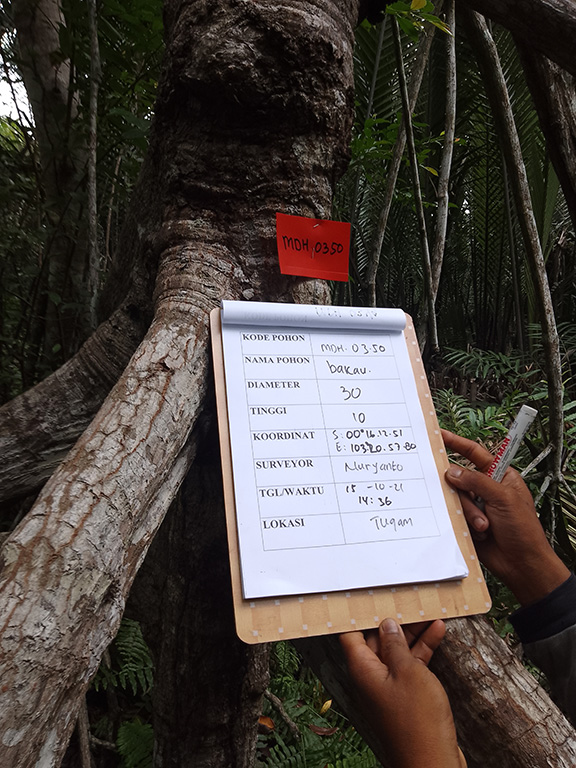 MDH, 0350
KODE POHON MDH. 0350
NAMA POHON bakau.
DIAMETER 30
TINGGI 10
KOORDINAT S: 00°16.12.51
E: 103°20.57.80
SURVEYOR Nuryanto
TGL/WAKTU 15 -10-21
14:36
LOKASI Tugam
SNOWMAN